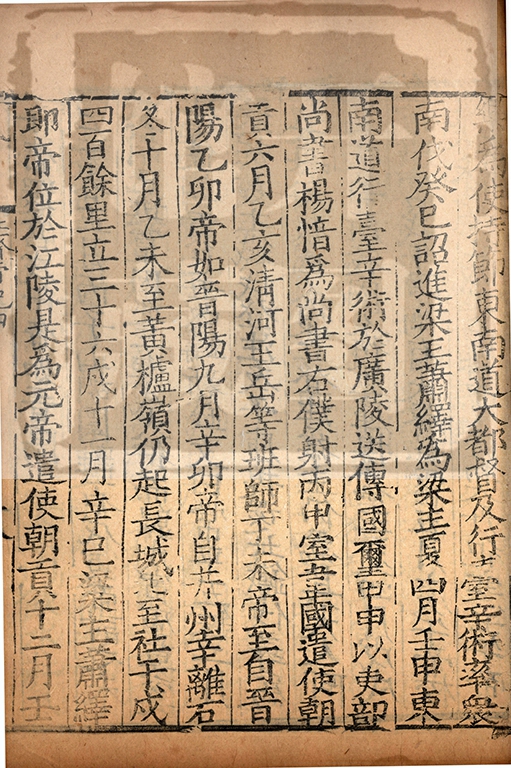 為使持節東南道大都督及行臺辛術率衆
南伐癸巳詔進梁王蕭繹為梁主夏四月壬申東
南道行臺辛術於廣陵送傳國璽甲申以吏部
尚書楊愔為尚書右僕射丙申室韋國遣使朝
貢六月乙亥清河王岳等班師丁未帝至自晉
陽乙卯帝如晉陽九月辛卯帝自并州幸離石
冬十月乙未至黃櫨嶺仍起長城北至社干戍
四百餘里立三十六戍十一月辛巳梁主蕭繹
即帝位於江陵是為元帝遣使朝貢十二月壬